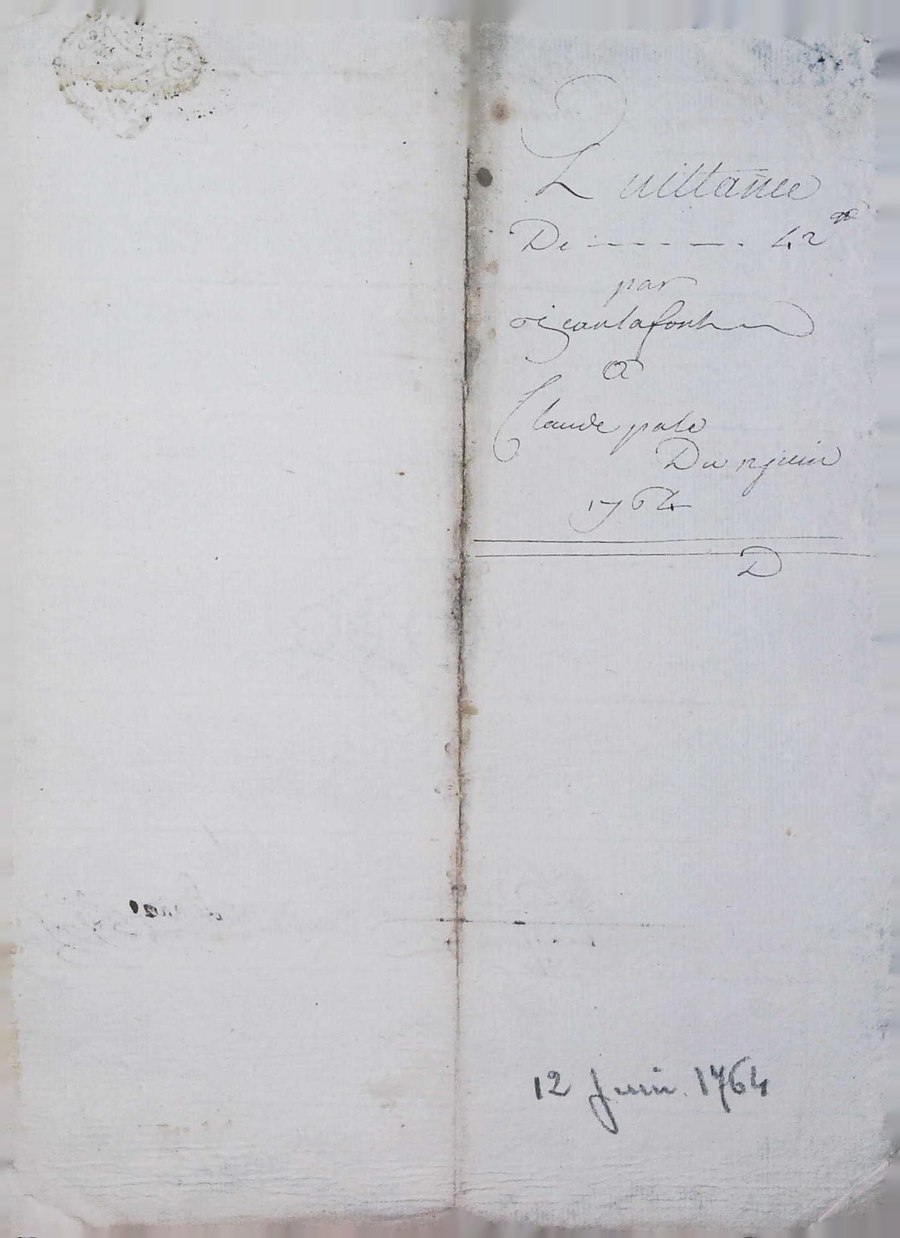 Quittance
De - - - - - - 42tt
par
jean lafont
a
Claude pale
Du 12 juin
1764
D
12 Juin 1764